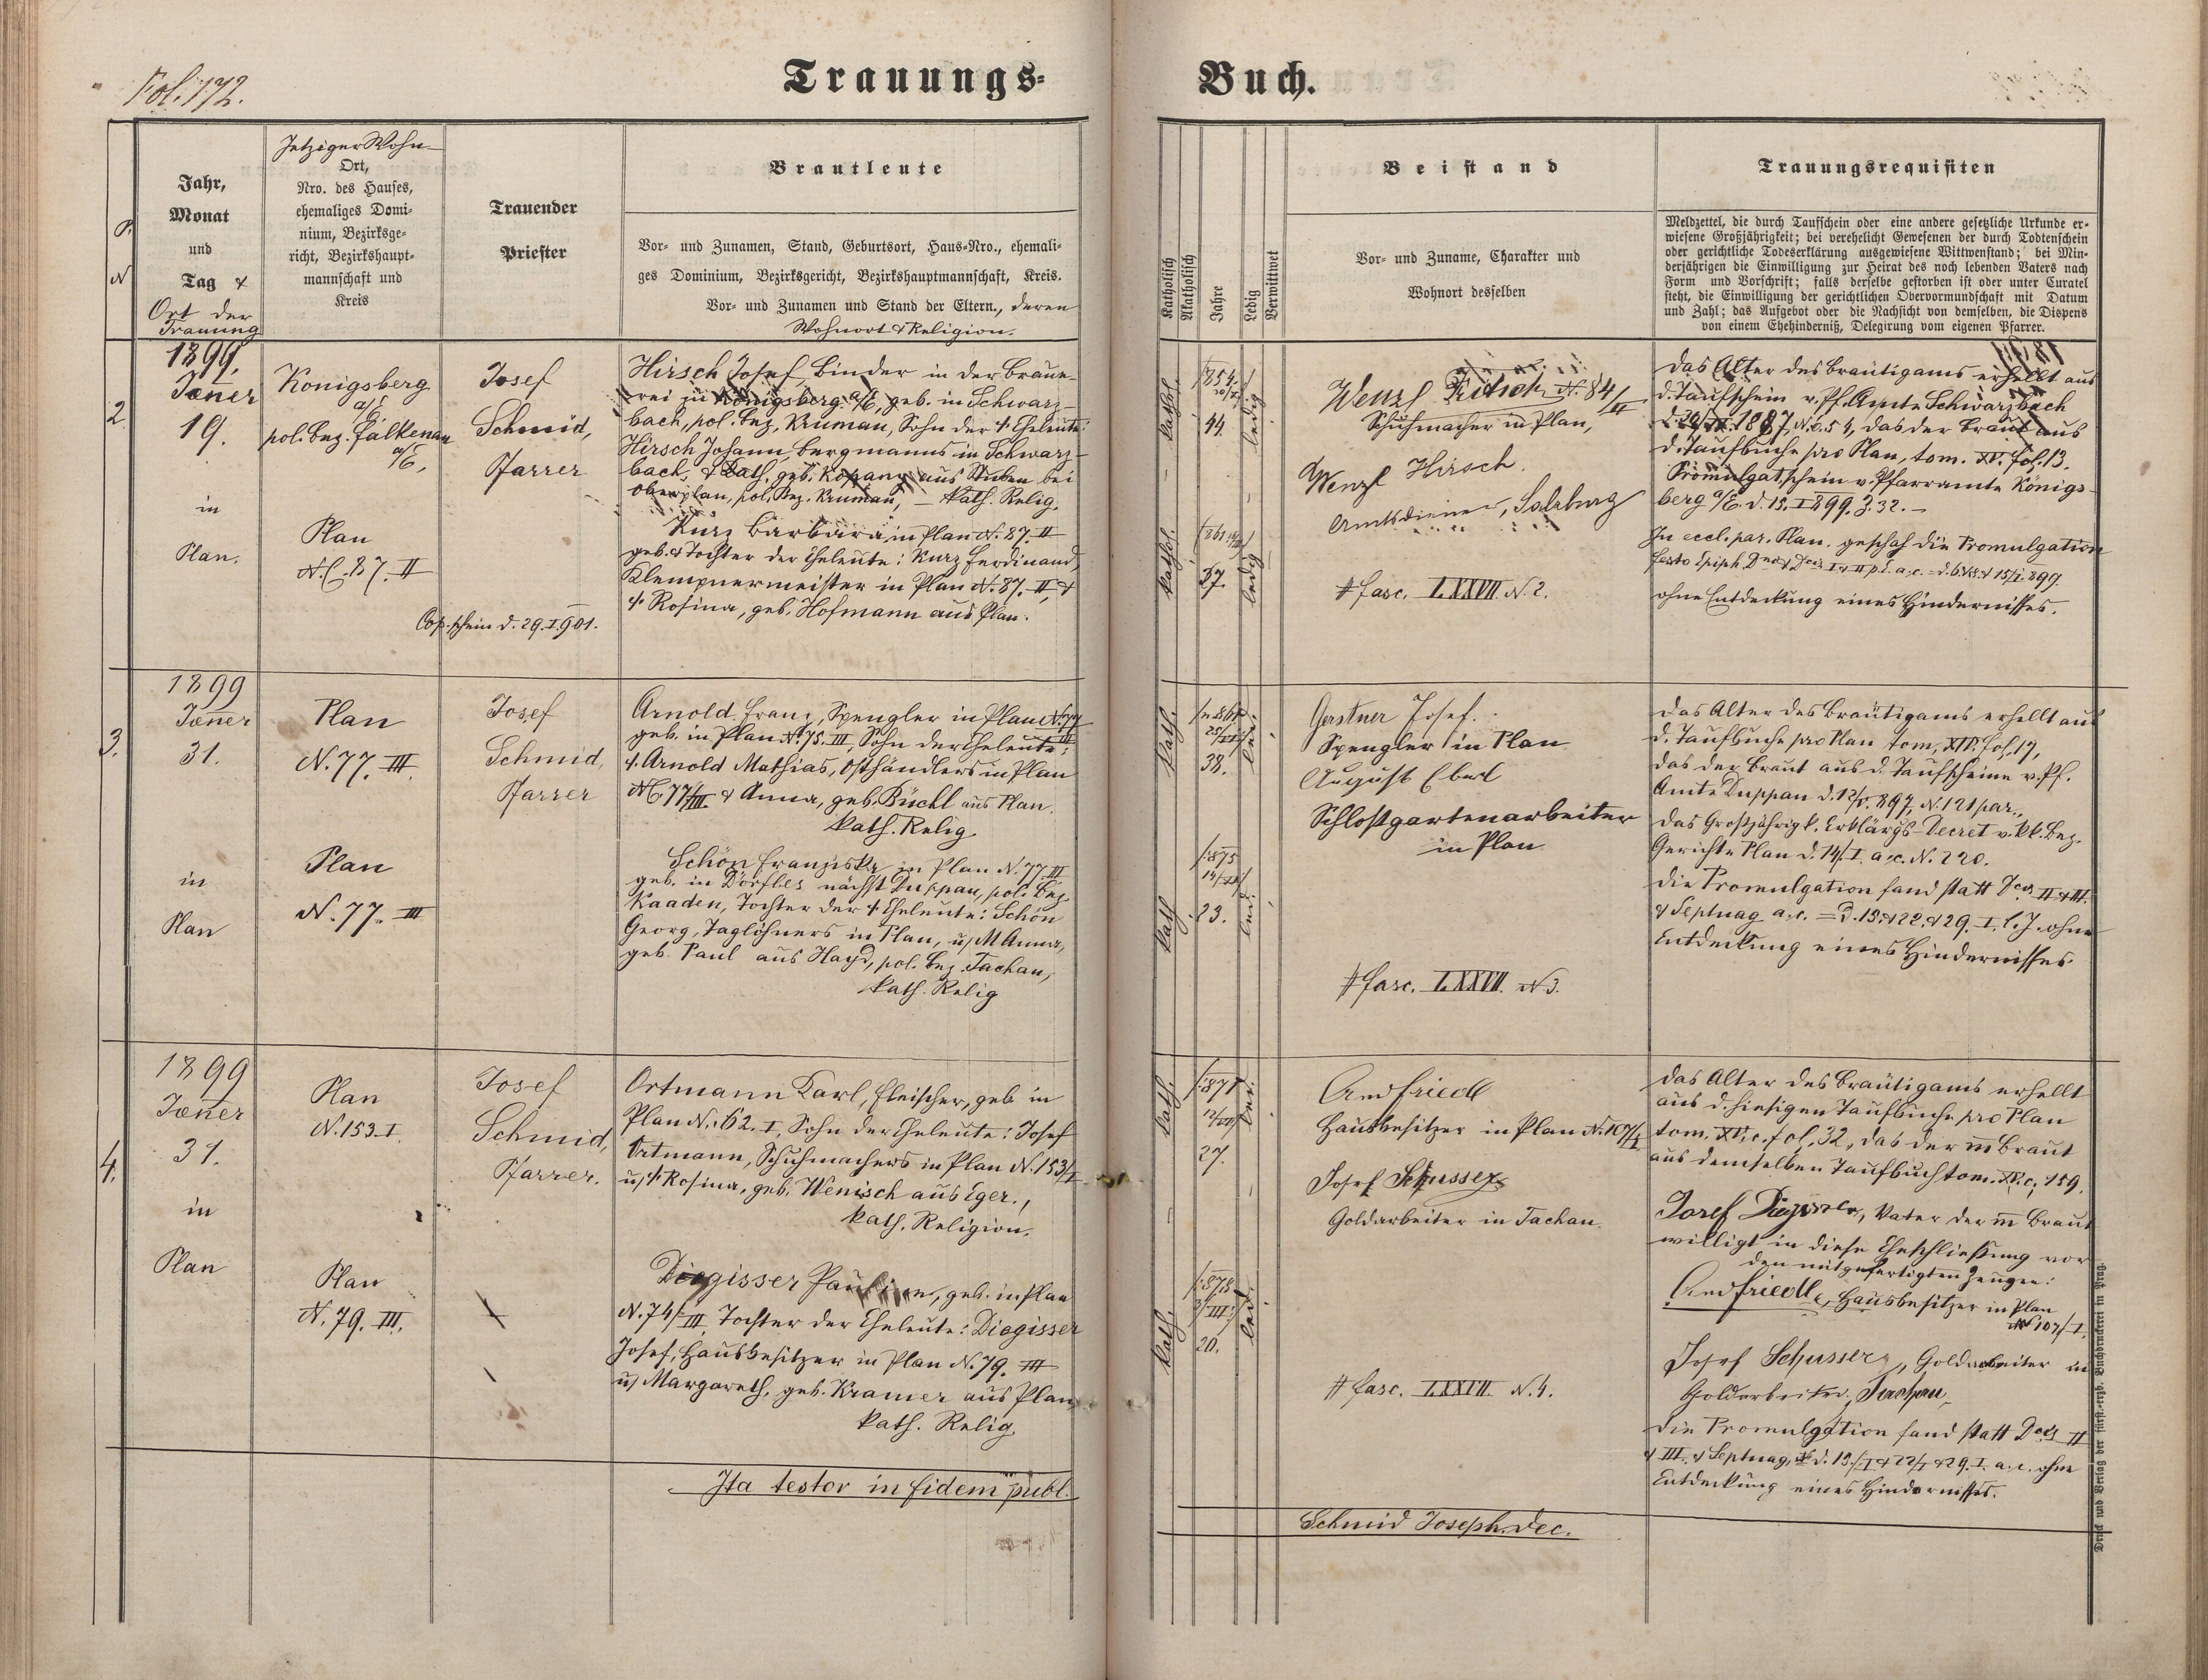 Fol. 172.
Trauungs-
Buch.
P.
N
Jahr,
Monat
und
Tag &
Ort der
Trauung
Jetziger Wohn-
Ort,
Nro. des Hauses,
ehemaliges Domi-
nium, Bezirksge-
richt, Bezirkshaupt-
mannschaft und
Kreis
Trauender
Priester
Brautleute
Vor- und Zunamen, Stand, Geburtsort, Haus-Nro., ehemali-
ges Dominium, Bezirksgericht, Bezirkshauptmannschaft, Kreis.
Vor- und Zunamen und Stand der Eltern., deren
Wohnort & Religion.
Katholisch
Akatholisch
Jahre
Ledig
Verwittwet
Beistand
Vor- und Zuname, Charakter und
Wohnort desselben
Trauungsrequisiten
Meldzettel, die durch Taufschein oder eine andere gesetzliche Urkunde er-
wiesene Großjährigkeit; bei verehelicht Gewesenen der durch Todtenschein
oder gerichtliche Todeserklärung ausgewiesene Wittwenstand; bei Min-
derjährigen die Einwilligung zur Heirat des noch lebenden Vaters nach
Form und Vorschrift; falls derselbe gestorben ist oder unter Curatel
steht, die Einwilligung der gerichtlichen Obervormundschaft mit Datum
und Zahl; das Aufgebot oder die Nachsicht von demselben, die Dispens
von einem Ehehinderniß, Delegirung vom eigenen Pfarrer.
2
1899,
Jäner
19.
in
Plan.
Königsberg
a/E
pol. Bez. Falkenau
a/E,
Plan
N.C. 87. II
Josef
Schmid,
Pfarrer
Cop.schein d. 29.I.901.
Hirsch Josef, Binder in der Braue-
rei zu Königsberg a/E, geb. in Schwarz-
bach, pol. Bez. Kruman, Sohn der † Eheleute:
Hirsch Johann, Bergmanns in Schwarz-
bach, & Kath. geb. Kopany aus Stuben bei
Oberplan, pol. Bez. Kruman, – kath. Relig.
Kurz Barbara, in Plan N. 87. II
geb. & Tochter der Eheleute: Kurz Ferdinand,
Klempnermeister in Plan N. 87. II, &
† Rosina, geb. Hofmann aus Plan.
kathol.
44.
ledig
kathol.
37.
ledig
Wenzl Fritsch N. 84/II
Schuhmacher in Plan,
Wenzl Hirsch.
Amtsdiener, Salzburg
# fasc. LXXVII. N. 2.
Das Alter des Bräutigams erhellt aus
d. Taufschein v. Pf. Amte Schwarzbach
das der Braut aus
d. Taufbuche pro Plan, tom. XV. fol. 13.
Promulgat.schein v. Pfarramte Königs-
berg a/E. d. 15. I 899. Z. 32. –
In eccl. par. Plan. geschah die Promulgation
ohne Entdeckung eines Hindernisses.
3.
1899
Jäner
31.
in
Plan
Plan
N. 77. III.
Plan
N. 77. III
Josef
Schmid,
Pfarrer
Arnold Franz, Spengler in Plan N. 77/III
geb. in Plan N. 75. III, Sohn der Eheleute:
†. Arnold Mathias, Obsthändlers in Plan
NC. 77/III & Anna, geb. Büchl aus Plan.
kath. Relig.
Schön Franziska in Plan N. 77. III
geb. in Dörfles nächst Duppau, pol. Bez.
Kaaden, Tochter der † Eheleute: Schön
Georg, Taglöhners in Plan, u/ M Anna,
geb. Paul aus Hayd, pol. Bez. Tachau,
kath. Relig
kath.
38.
led.
kath
/:875
23.
led.
Gerstner Josef.
Spengler in Plan
August Eberl
Schloßgartenarbeiter
in Plan
# fasc. LXXVII. N 3.
Das Alter des Bräutigams erhellt aus
d. Taufbuche pro Plan tom. XIV. fol. 17,
das der Braut aus d. Taufscheine v. Pf.
Amte Duppau d. 12/I. 897, N. 121 par.,
das Großjährigk. Erklärgs-Decret v. kk. Bez.
Gerichte Plan d. 14/I. a.c. N. 220.
Die Promulgation fand statt Dca II & III.
& Septuag a.c. = d. 15. & 22. & 29. I. l. J. ohne
Entdeckung eines Hindernisses
4.
1899
Jäner
31.
in
Plan
Plan
N. 153. I.
Plan
N. 79. III.
Josef
Schmid,
Pfarrer.
Ortmann Karl, Fleischer, geb. in
Plan N. 62. I, Sohn der Eheleute: Josef
Ortmann, Schuhmachers in Plan N. 153/I
u/ † Rosina, geb. Wenisch aus Eger.,
kath. Religion.
Diegisser Pauline, geb. in Plan
N. 74/III, Tochter der Eheleute: Diegisser
Josef, Hausbesitzer in Plan N. 79. III
u/ Margareth, geb. Kramer aus Plan,
kath. Relig.
kath.
/:871
27.
led.
kath.
/:878
3/III
20.
led.
And Friedl
Hausbesitzer in Plan N. 107/I
Josef Schusser
Goldarbeiter in Tachau.
# fasc. LXXVII. N. 4.
Das Alter des Bräutigams erhellt
aus d. hiesigen Taufbuche pro Plan
tom. XV. c. fol. 32, das der m Braut
aus demselben Taufbuch tom. XV. c; 159.
Josef Diegisser, Vater der m Braut
willigt in diese Eheschließung vor
den mitgefertigten Zeugen:
And Friedl, Hausbesitzer in Plan
N 107/I.
Josef Schusser, Goldarbeiter in
Goldarbeiter, Tachau
Die Promulgation fand statt Dca II
& III. & Septuag, d. 15./I & 22/I & 29. I. a.c. ohne
Entdeckung eines Hindernisses.
Ita testor in fidem publ.
Schmid Joseph. Dec.
Druck und Verlag der fürst.-erzb. Buchdruckerei in Prag.